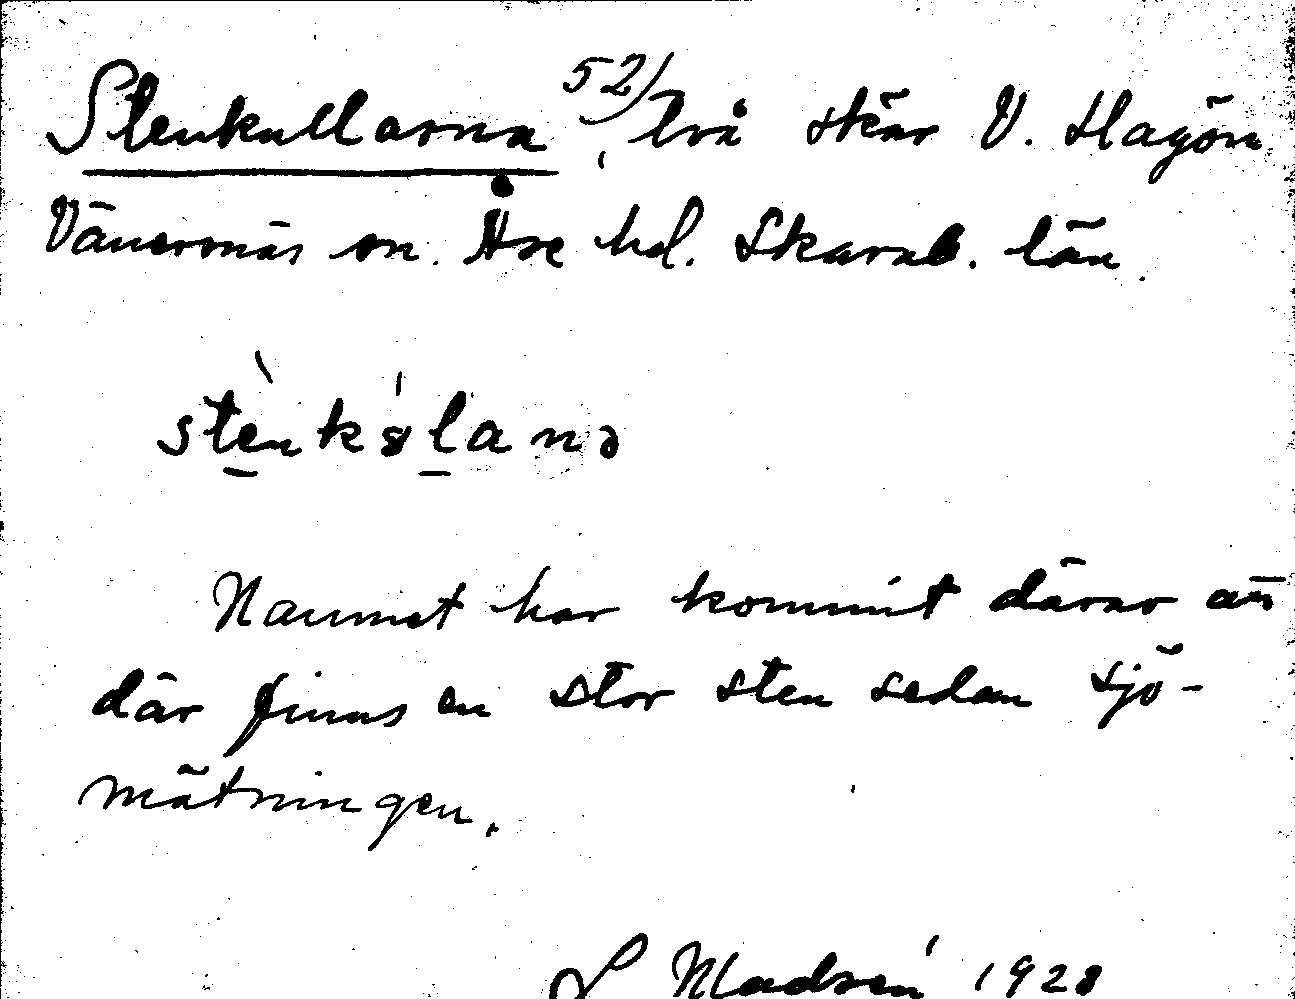 Stenkullarna 52/, två skär V. Hagön
Vänersnäs sn. Åse hd. Skarab. län.
stènkələnə
Namnet har kommit därav att
där finns en stor sten sedan sjö-
mätningen.
L Madsén 1928